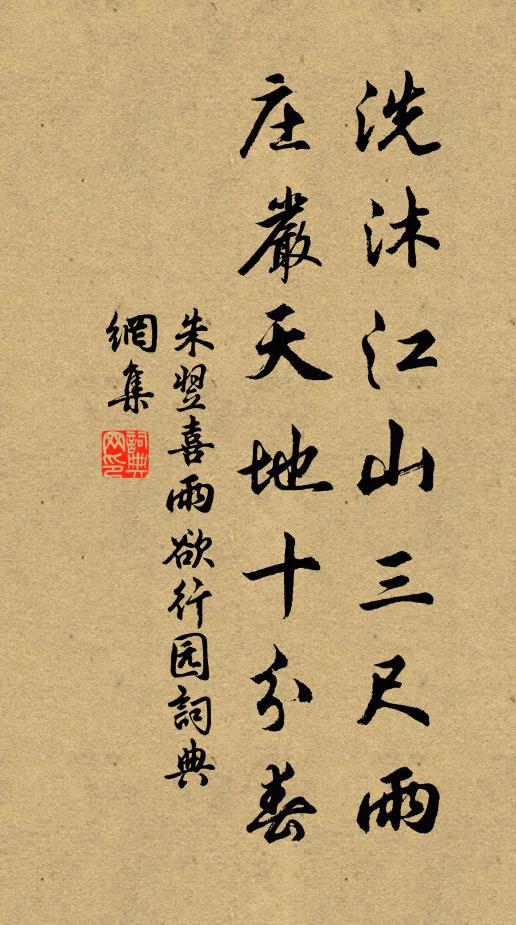 洗沐江山三尺雨
庄嚴天地十分春
朱翌喜雨欲行园詞典
網集
詞典
网印